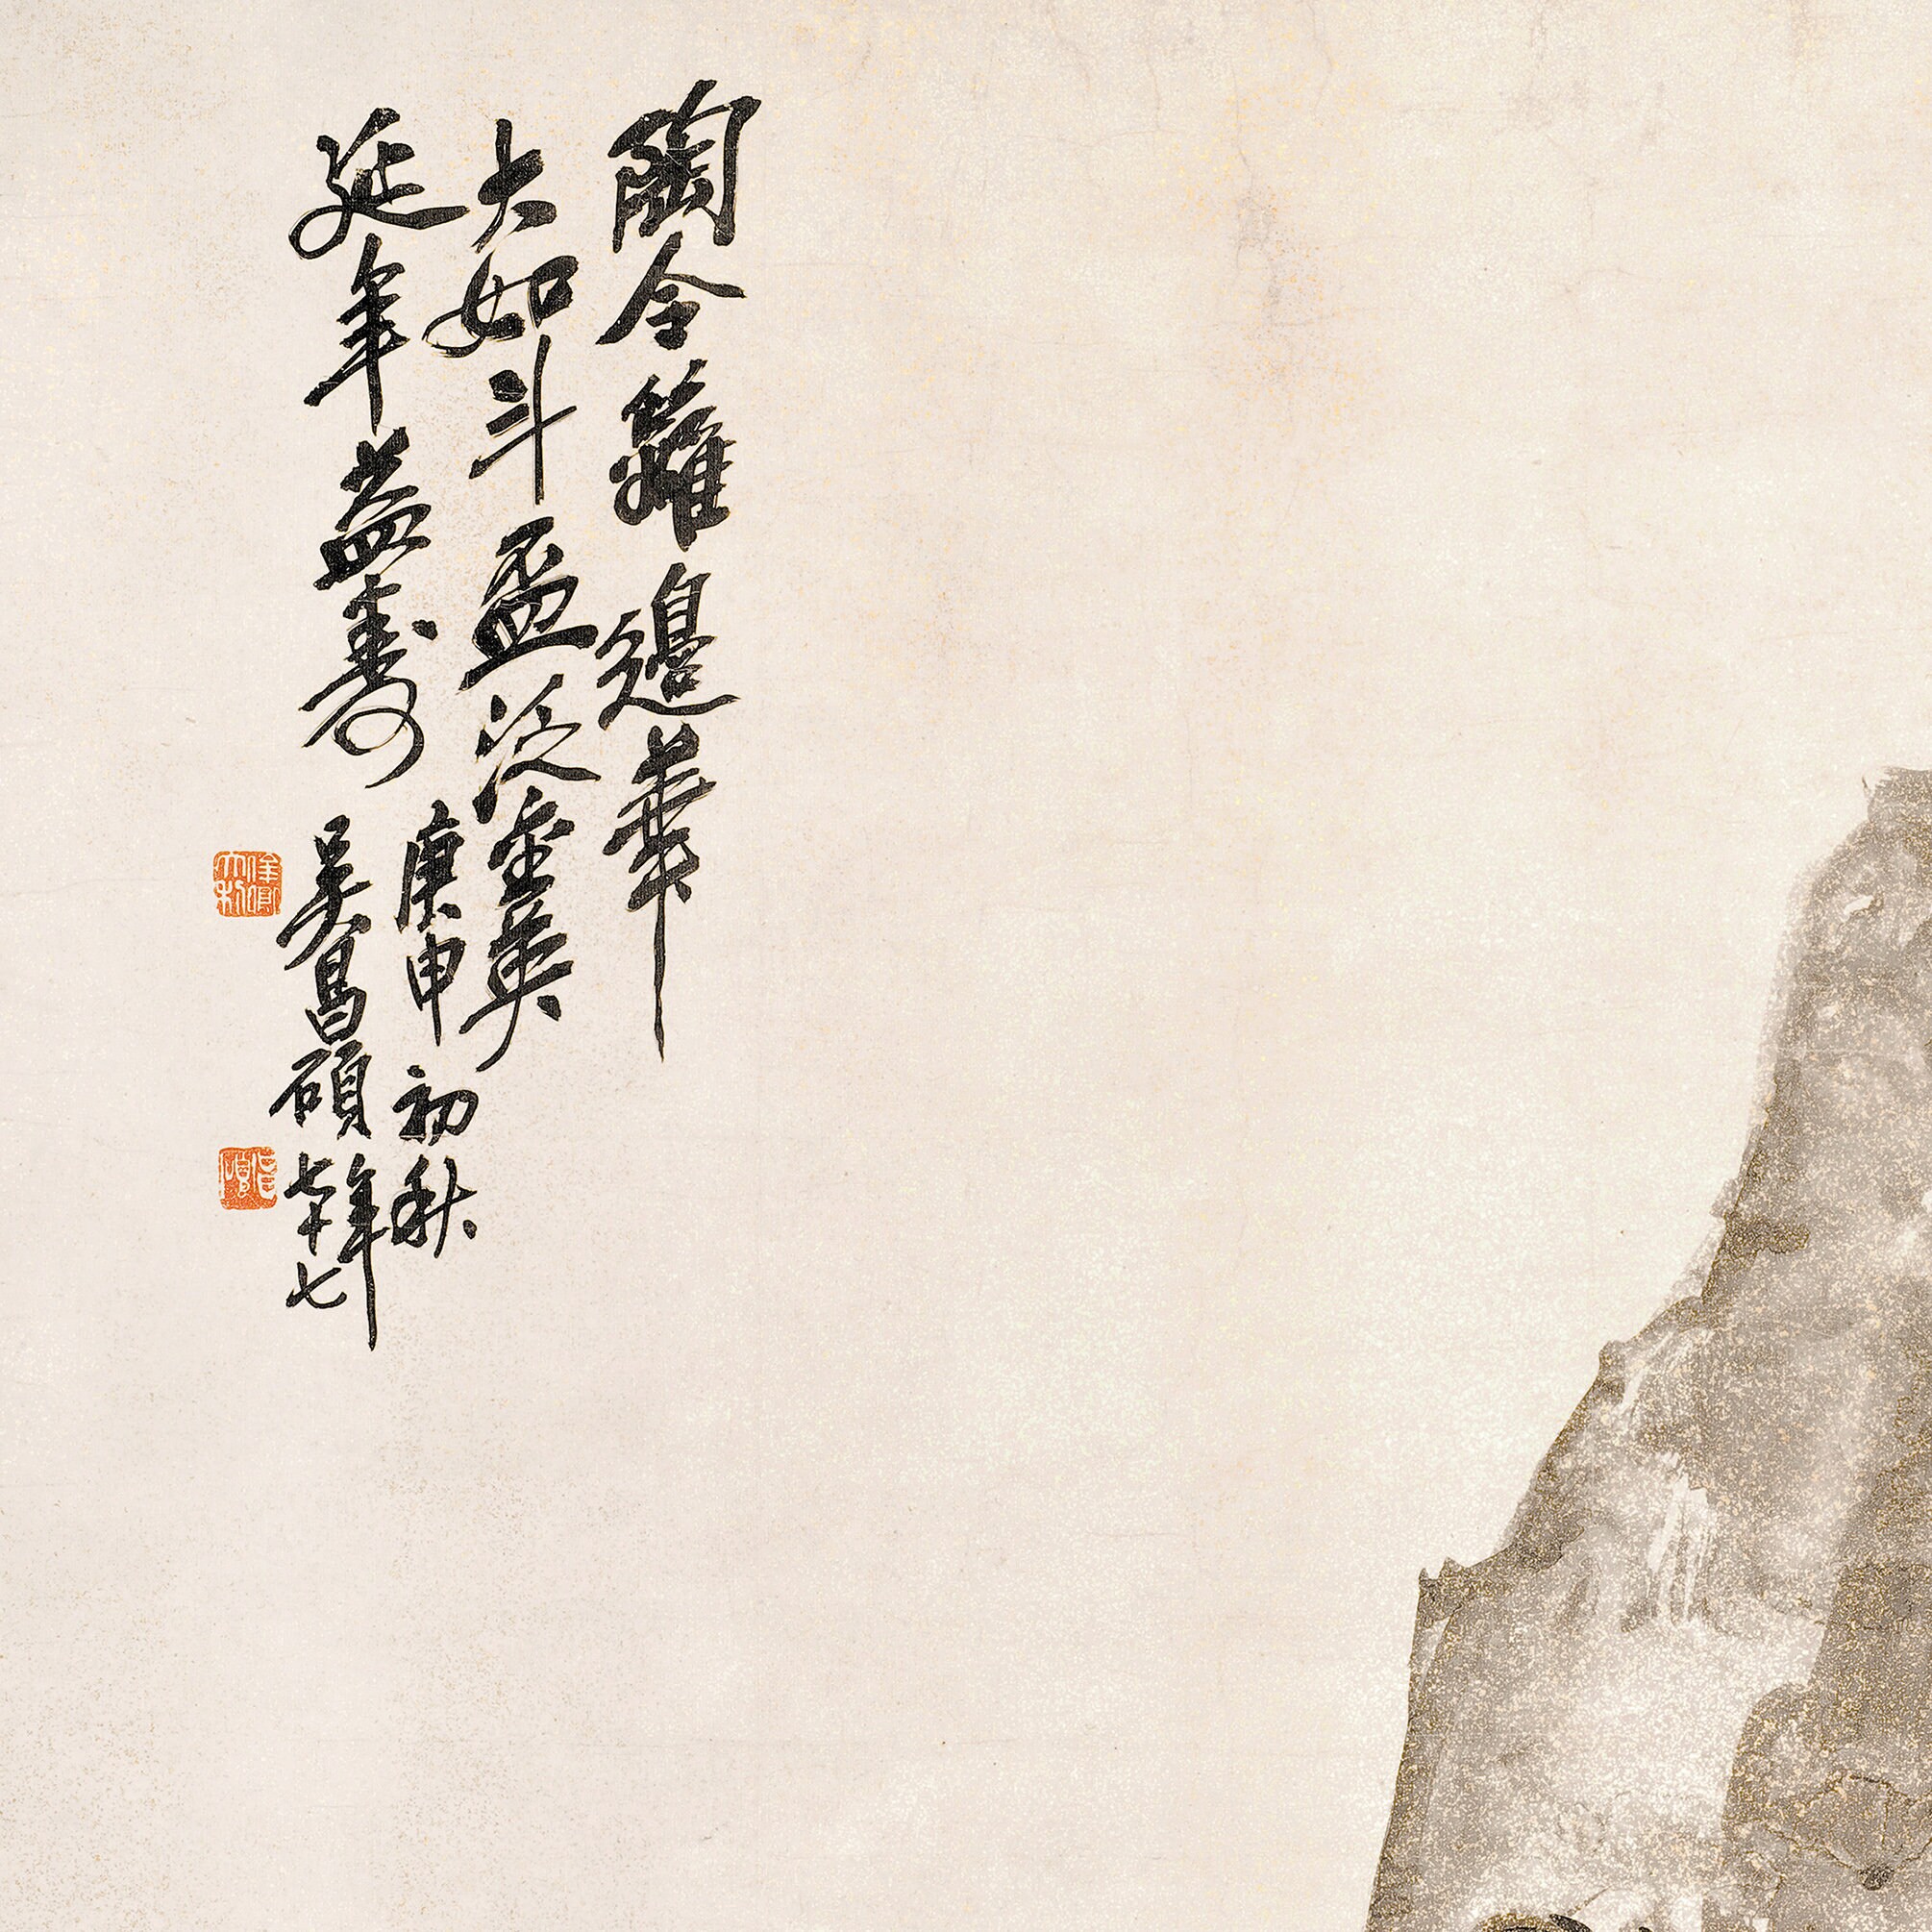 陶令籬邊華
大如斗盃泛金英
延年益壽
庚申初秋
吳昌碩年
七十七
俊卿大利
倉碩